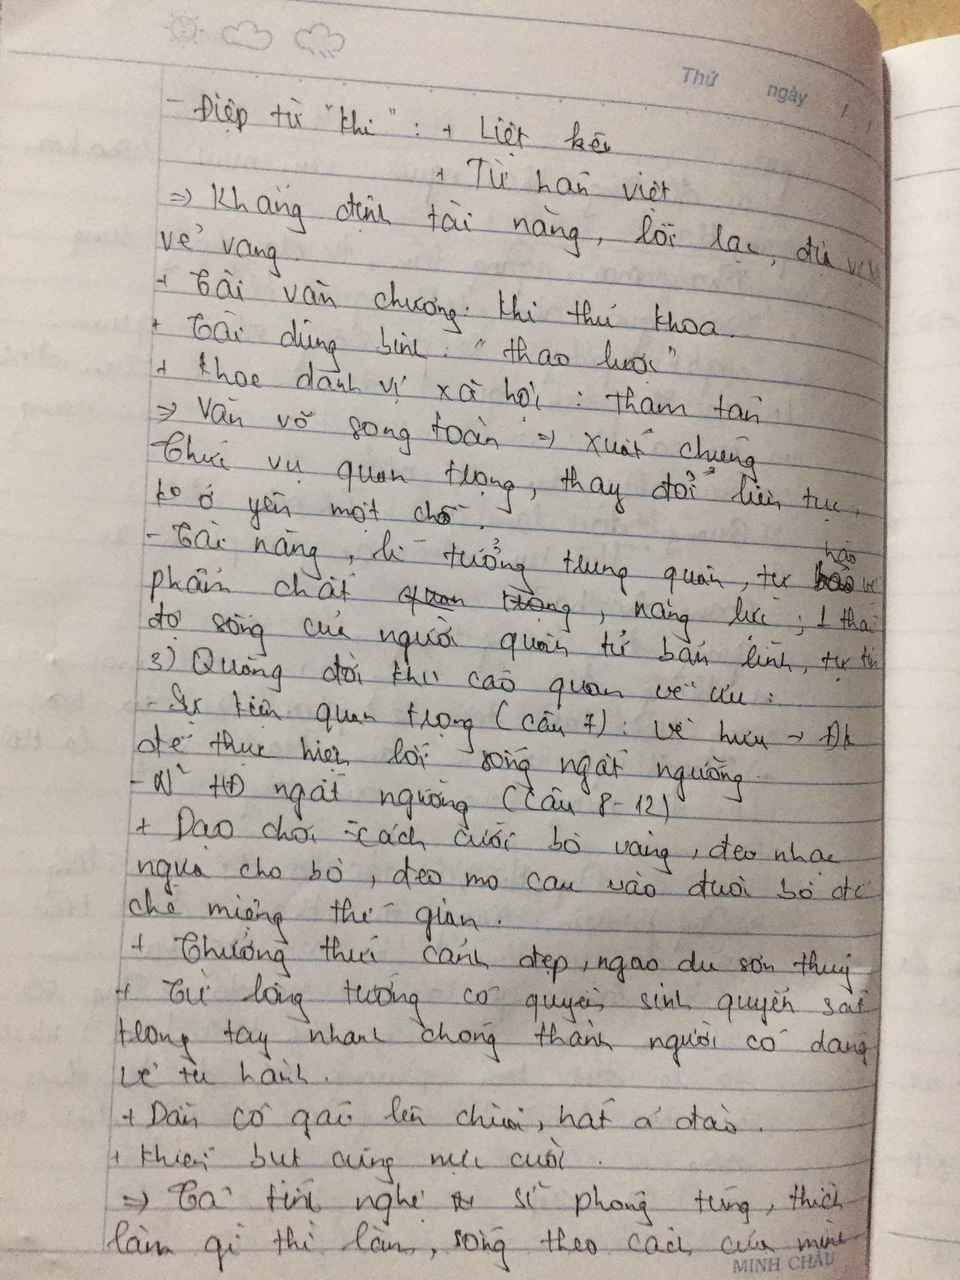 Thứ ngày / /
- Điệp từ "khi" : + Liệt kê
+ Từ hán việt
=> Khẳng định tài năng, lỗi lạc, đủ
vẻ vang
+ Tài văn chương: khi thủ khoa
+ Tài dùng binh: "thao lược"
+ Khoe danh vị xã hội : Tham tán
=> Văn võ song toàn => xuất chúng
Chức vụ quan trọng, thay đổi liên tục,
ko ở yên một chỗ.
- Tài năng, lí tưởng trung quân, tự hào về
phẩm chất, năng lực, 1 thái
độ sống của người quân tử bản lĩnh, tự tin
3) Quãng đời khi cáo quan về hưu :
- Sự kiện quan trọng (câu 7) : về hưu → Đk
để thực hiện lối sống ngất ngưởng.
- HĐ ngất ngưởng (Câu 8-12)
+ Dạo chơi = cách cưỡi bò vàng, đeo nhạc
ngựa cho bò, đeo mo cau vào đuôi bò để
che miệng thế gian.
+ Thưởng thức cảnh đẹp, ngao du sơn thuỷ
+ Từ lòng tướng có quyền sinh quyền sát
trong tay nhanh chóng thành người có dáng
vẻ tu hành.
+ Dẫn cô gái lên chùa, hát ả đào.
+ Khiến bụt cũng nực cười.
=> Cá tính nghệ sĩ phóng túng, thích
làm gì thì làm, sống theo cách của mình
MINH CHÂU